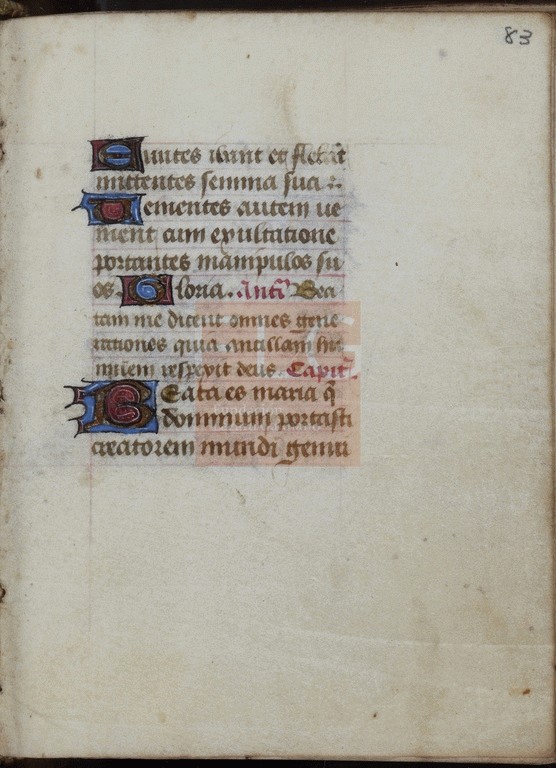 83
Euntes ibant et flebāt
mittentes semina sua :·
Uementes autem ue
nient cum exultatione
portantes manipulos su
os. Gloria. Antī Bea
tam me dicent omnes gene
rationes quia ancillam hu
milem respexit deus Capitl̄.
Beata es maria q̄
dominum portasti
creatorem mundi genui